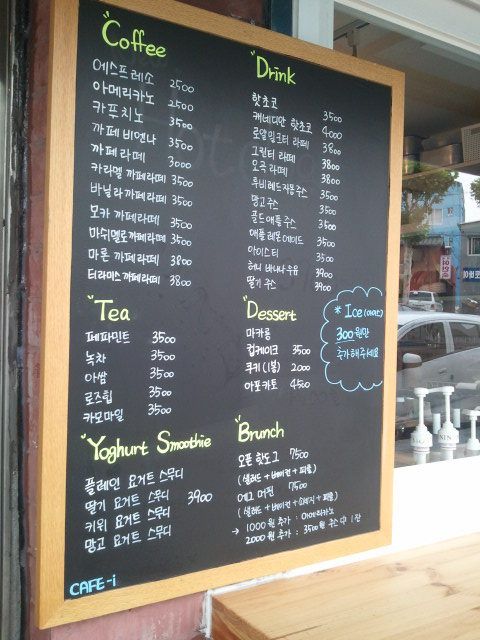 Coffee
에스프레소 2500
아메리카노 2500
카푸치노 3500
까페 비엔나 3500
까페라떼 3000
카라멜 까페라떼 3500
바닐라까페라떼 3500
모카 까페라떼 3500
마쉬멜로까페라떼 3500
마론 까페라떼 3800
티라미스까페라떼 3800
Drink
핫초코 3500
캐네디안 핫초코 4000
로얄밀크티 라떼 3800
그린티 라떼 3800
오곡 라떼 3800
루비레드자몽주스 3500
망고주스 3500
골드애플 주스 3500
애플 레몬에이드 3500
아이스티 3500
허니 바나나 우유 3900
딸기 주스 3900
Tea
페퍼민트 3500
녹차 3500
아쌈 3500
로즈힙 3500
카모마일 3500
Dessert
마카롱
컵케이크 3500
쿠키(1봉) 2000
아포카토 4500
* Ice (아이스)
300원만
추가해주세요
Yoghurt Smoothie
플레인 요거트 스무디
딸기 요거트 스무디 3900
키위 요거트 스무디
망고 요거트 스무디
Brunch
오픈 핫도그 7500
(샐러드 + 베이컨 + 피클)
에그 머핀 7500
(샐러드 + 베이컨 + 소세지 + 피클)
→ 1000원 추가 : 아메리카노
2000원 추가 : 3500원 주스 中 1잔
CAFE-i